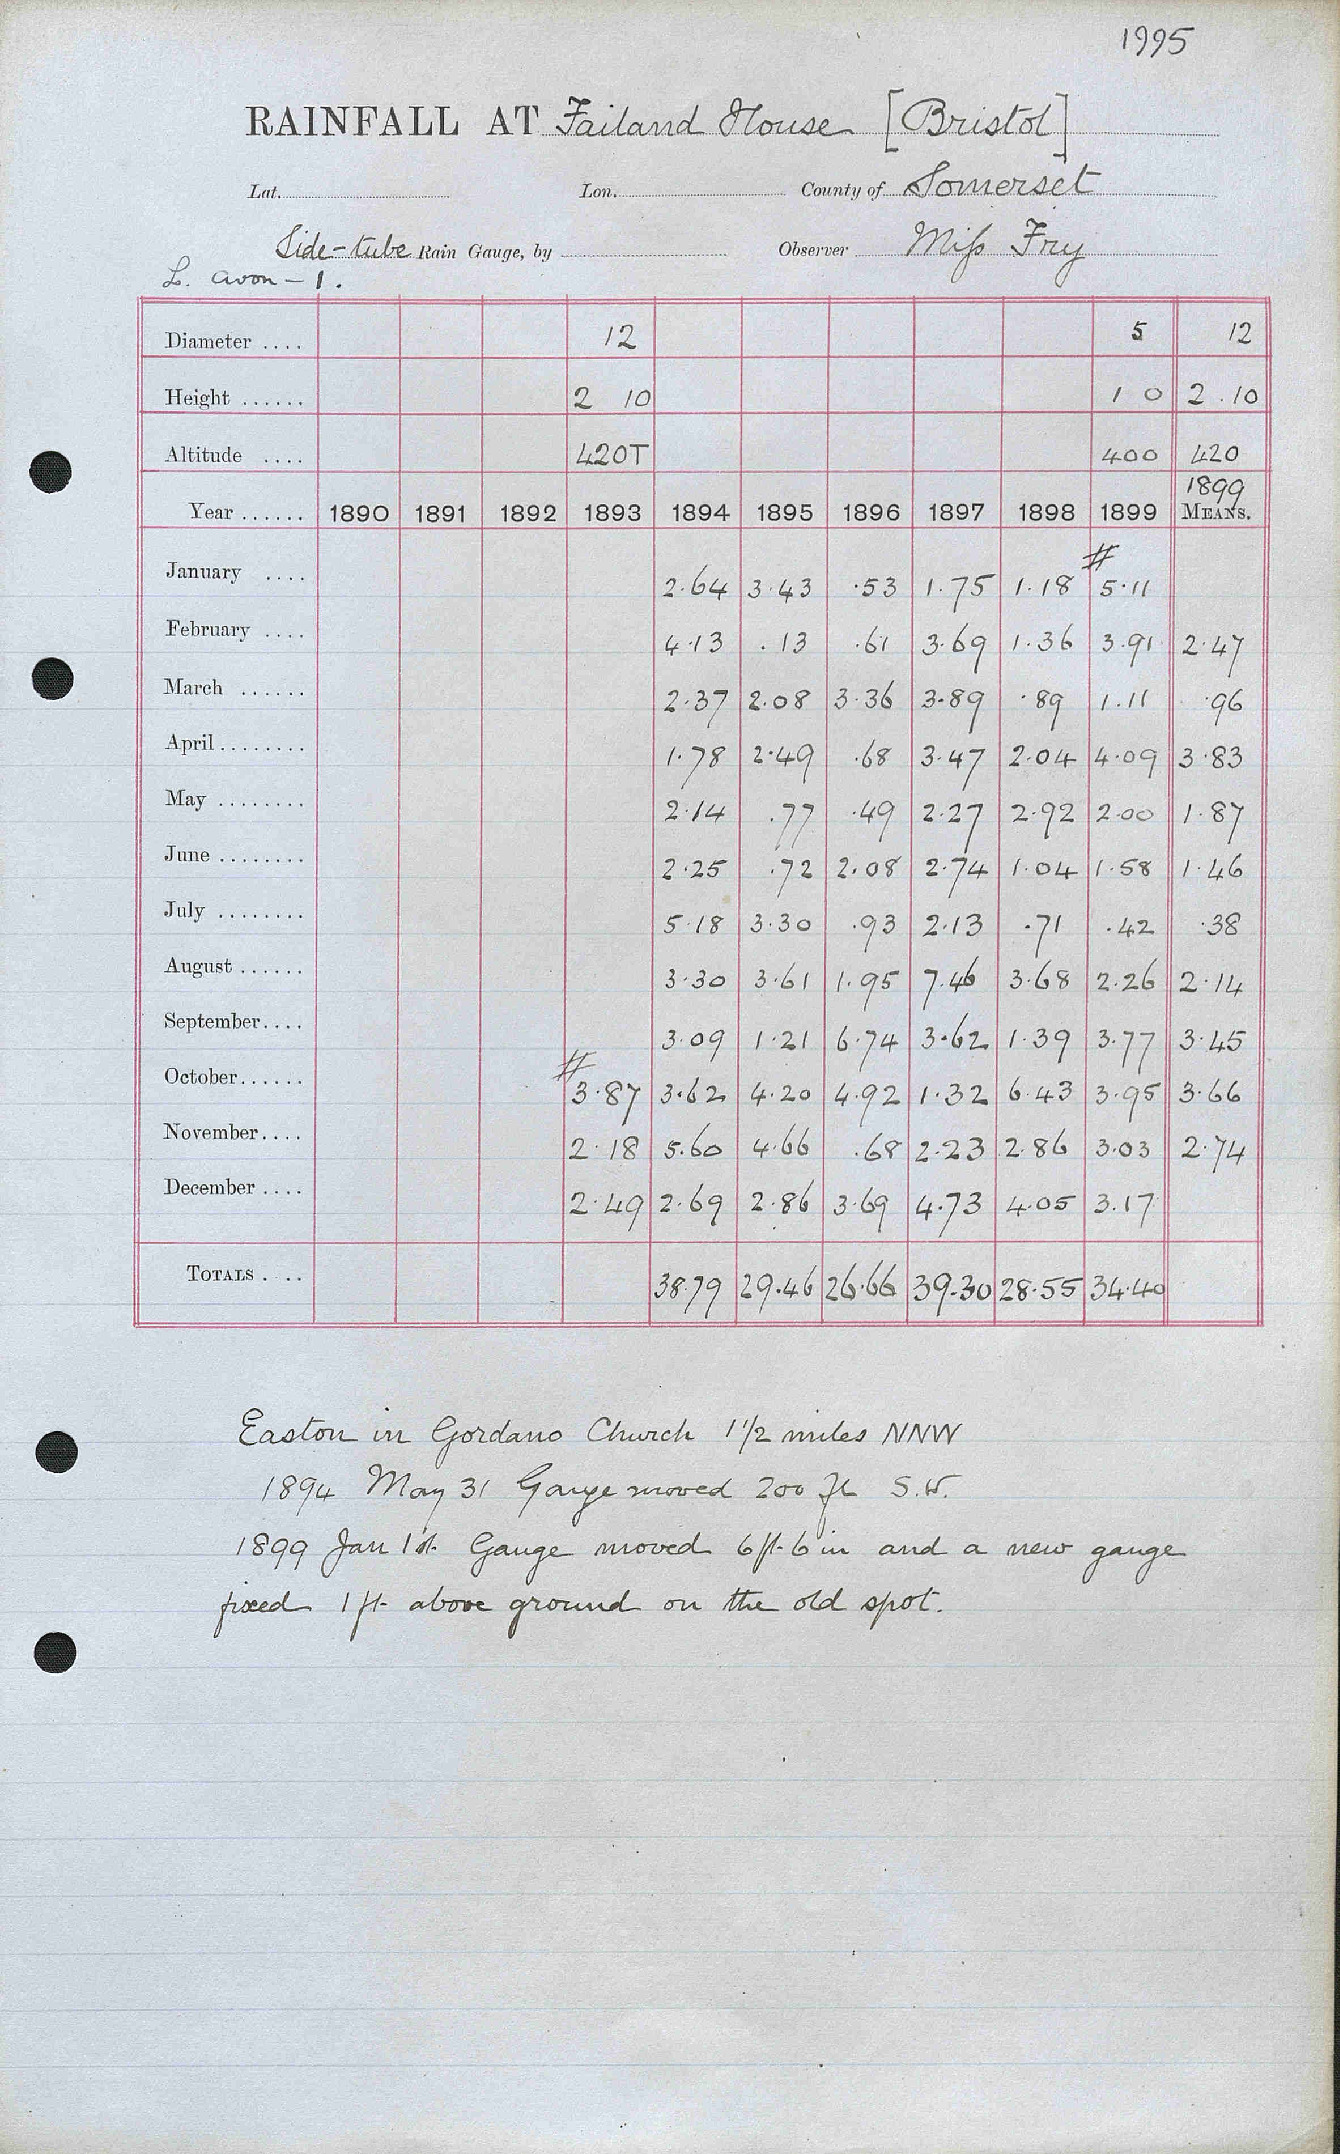 1995
RAINFALL AT Failand House [Bristol]
Lat. Lon. County of Somerset
Side-tube Rain Gauge, by Observer Miss Fry
L. Avon - 1.
Diameter .... 12 5 12
Height ...... 2 10 1 0 2.10
Altitude .... 420T 400 420
1899
Year ...... 1890 1891 1892 1893 1894 1895 1896 1897 1898 1899 MEANS.
#
January .... 2.64 3.43 .53 1.75 1.18 5.11
February .... 4.13 .13 .61 3.69 1.36 3.91 2.47
March ...... 2.37 2.08 3.36 3.89 .89 1.11 .96
April ........ 1.78 2.49 .68 3.47 2.04 4.09 3.83
May ........ 2.14 .77 .49 2.27 2.92 2.00 1.87
June ........ 2.25 .72 2.08 2.74 1.04 1.58 1.46
July ........ 5.18 3.30 .93 2.13 .71 .42 .38
August ...... 3.30 3.61 1.95 7.46 3.68 2.26 2.14
September.... 3.09 1.21 6.74 3.62 1.39 3.77 3.45
#
October...... 3.87 3.62 4.20 4.92 1.32 6.43 3.95 3.66
November.... 2.18 5.60 4.66 .68 2.23 2.86 3.03 2.74
December .... 2.49 2.69 2.86 3.69 4.73 4.05 3.17
TOTALS .... 38.79 29.46 26.66 39.30 28.55 34.40
Easton in Gordano Church 1 1/2 miles NNW
1894 May 31 Gauge moved 200 ft S.W.
1899 Jan 1st Gauge moved 6 ft 6 in and a new gauge
fixed 1 ft above ground on the old spot.